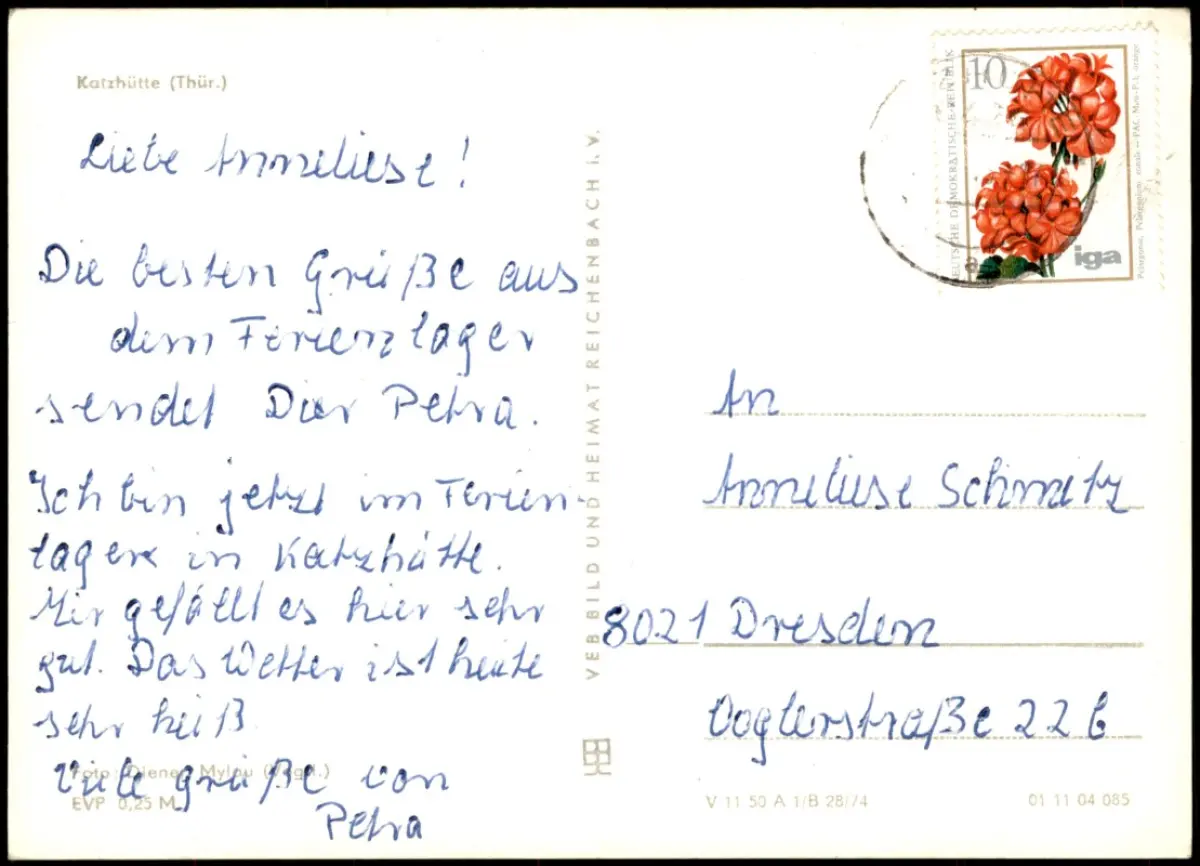 Katzhütte (Thür.)
Liebe Anneliese!
Die besten Grüße aus
dem Ferienlager
sendet Dir Petra.
Ich bin jetzt im Ferien-
lager in Katzhütte.
Mir gefällt es hier sehr
gut. Das Wetter ist heute
sehr heiß.
Viele Grüße von
Petra
Foto: Diener, Mylau (Vogtl.)
EVP 0,25 M
VEB BILD UND HEIMAT REICHENBACH i. V.
DEUTSCHE DEMOKRATISCHE REPUBLIK
10
iga
An
Anneliese Schmitz
8021 Dresden
Voglerstraße 22b
V 11 50 A 1/B 28/74
01 11 04 085